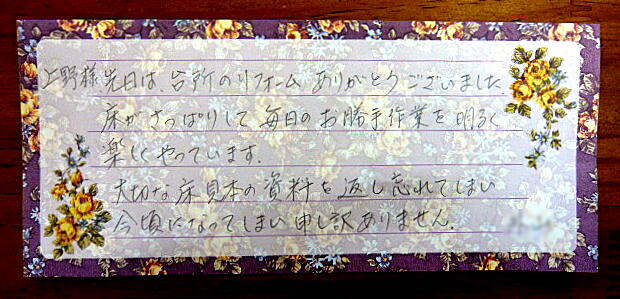 上野様先日は、台所のリフォーム ありがとうございました。
床がさっぱりして 毎日のお勝手作業を 明るく
楽しくやっています。
大切な床見本の資料を返し忘れてしまい
今頃になってしまい申し訳ありません。